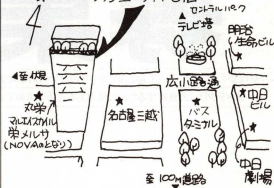 ▲セントラルパーク
テレビ塔
明治
生命ビル
▲至伏見
広小路通
丸栄
マルエイスカイル
栄メルサ
(NOVAのとなり)
名古屋三越
バス
ターミナル
中日
ビル
中日
劇場
至100m道路